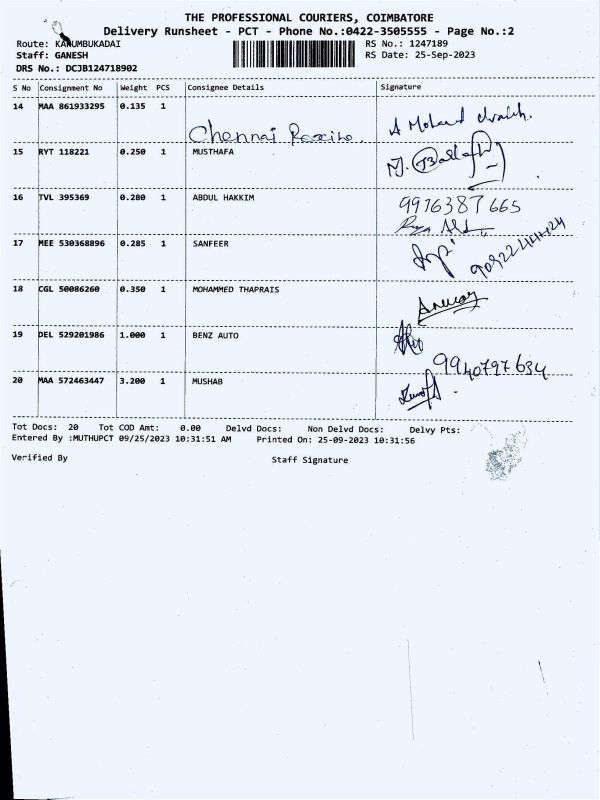 THE PROFESSIONAL COURIERS, COIMBATORE
Delivery Runsheet - PCT - Phone No.:0422-3505555 - Page No.:2
Route: KARUMBUKADAI RS No.: 1247189
Staff: GANESH RS Date: 25-Sep-2023
DRS No.: DCJB124718902
S No Consignment No Weight PCS Consignee Details Signature
14 MAA 861933295 0.135 1
Chennai A Mohamed
15 RYT 118221 0.250 1 MUSTHAFA
16 TVL 395369 0.280 1 ABDUL HAKKIM 9976387665
17 MEE 530368896 0.285 1 SANFEER
18 CGL 50086260 0.350 1 MOHAMMED THAPRAIS
19 DEL 529201986 1.000 1 BENZ AUTO
9940797634
20 MAA 572463447 3.200 1 MUSHAB
Tot Docs: 20 Tot COD Amt: 0.00 Delvd Docs: Non Delvd Docs: Delvy Pts:
Entered By :MUTHUPCT 09/25/2023 10:31:51 AM Printed On: 25-09-2023 10:31:56
Verified By Staff Signature